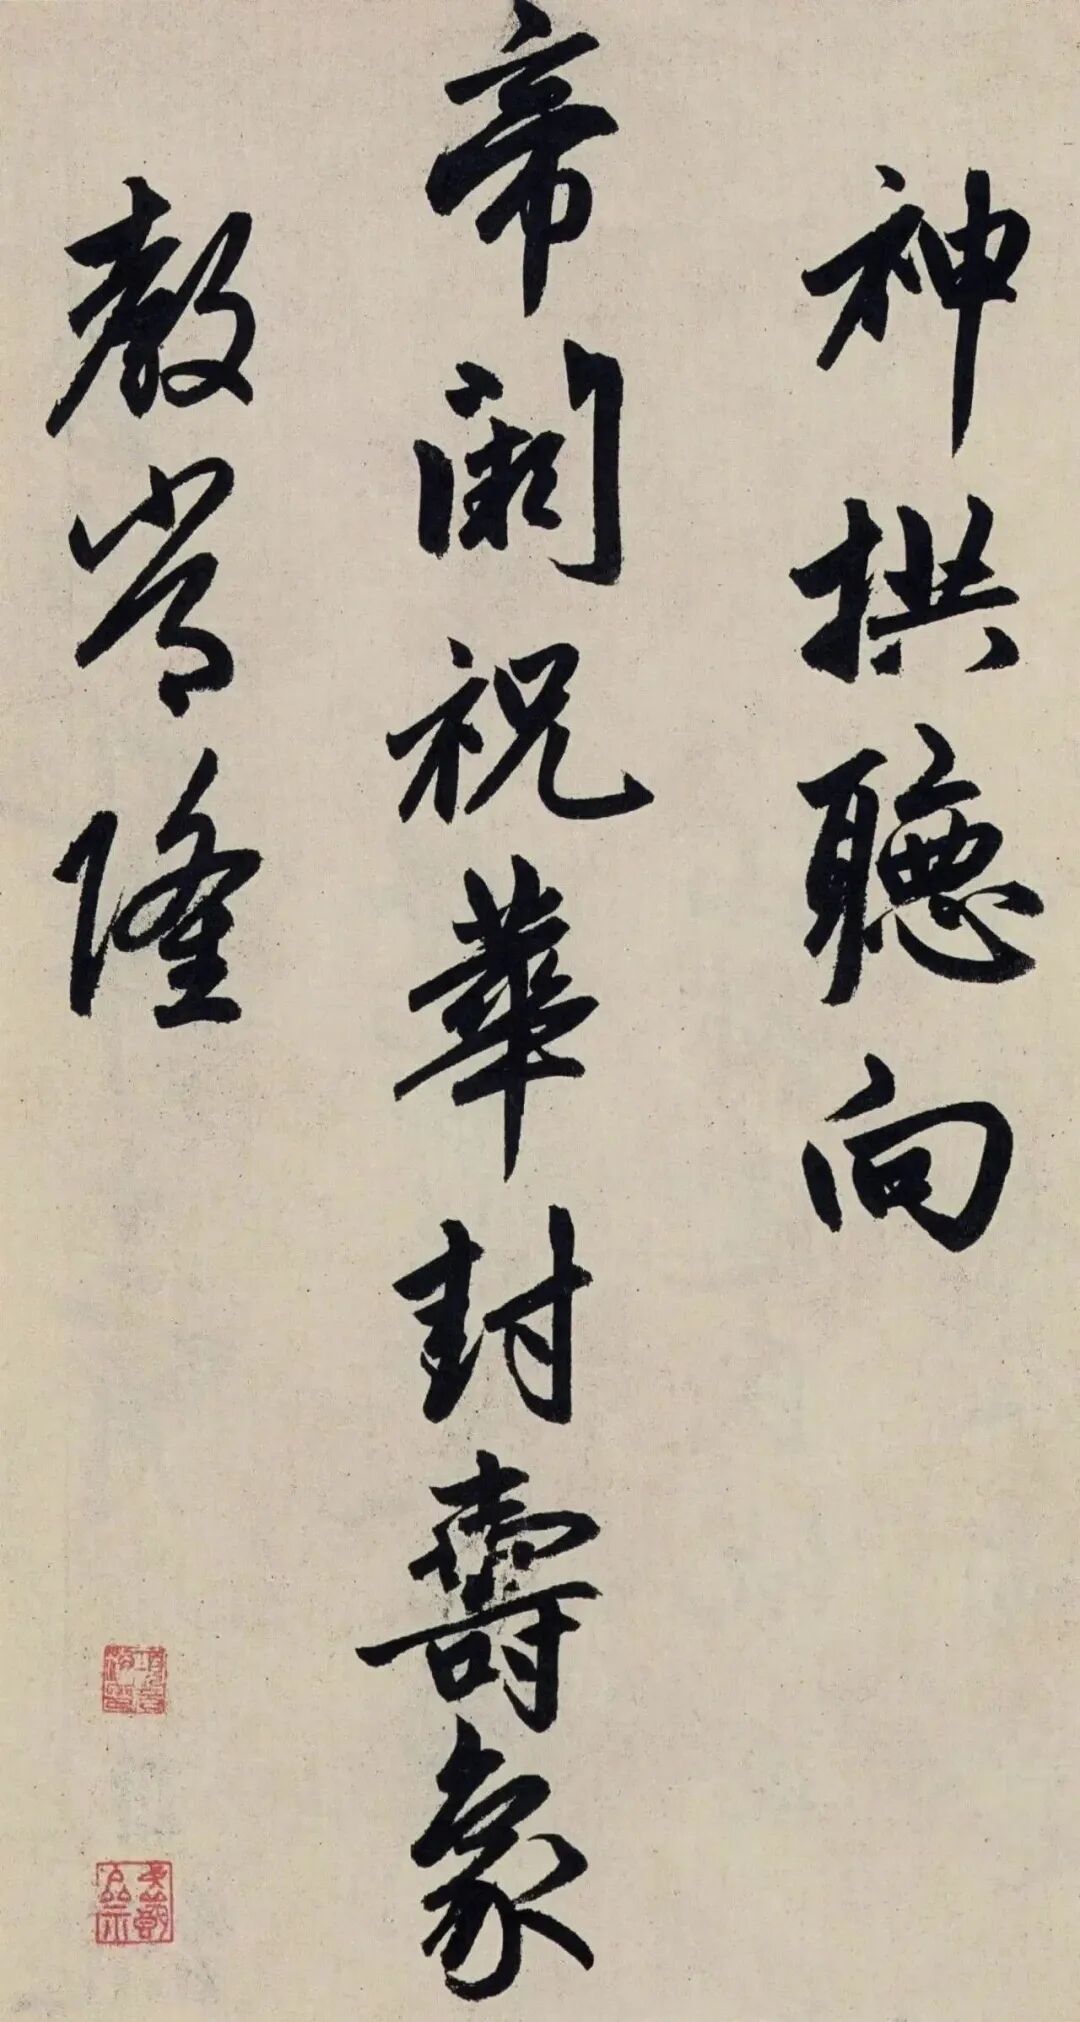 神拱聽向
帝闕祝華封壽象
教常隆